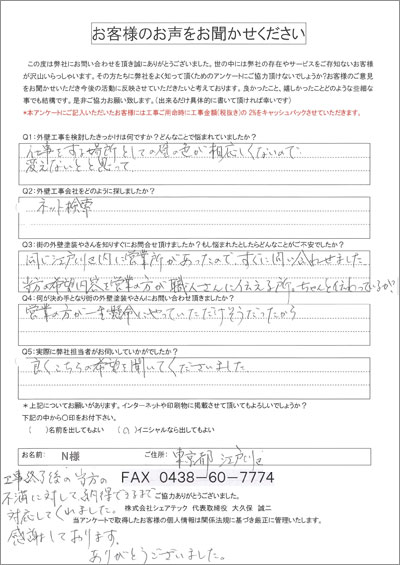 お客様のお声をお聞かせください
この度は弊社にお問い合わせを頂き誠にありがとうございました。世の中には弊社の存在やサービスをご存知ないお客様
が沢山いらっしゃいます。その方たちに弊社をよく知って頂くためのアンケートにご協力頂けないでしょうか?お客様のご意見
をお聞かせいただき今後の活動に反映させていただきたいと考えております。良かったこと、嬉しかったことどのような些細な
事でも結構です。是非ご協力お願い致します。(出来るだけ具体的に書いて頂ければ幸いです)
*本アンケートにご記入いただいたお客様には工事ご用命時に工事金額(税抜き)の 2%をキャッシュバックさせていただきます。
Q1:外壁工事を検討したきっかけは何ですか?どんなことで悩まれていましたか?
仕事をする場所としての壁の色が相応しくないので
変えないとと思って
Q2:外壁工事会社をどのように探しましたか?
ネット検索
Q3:街の外壁塗装やさんを知りすぐにお問合せ頂けましたか?もし悩まれたとしたらどんなことがご不安でしたか?
同じ江戸川区内に営業所があったので、すぐに問い合わせました
当方の希望内容を営業の方が職人さんに伝える所。ちゃんと伝わっているか
Q4:何が決め手となり街の外壁塗装やさんにお問い合わせ頂きましたか?
営業の方が一生懸命にやっていただけそうだったから
Q5:実際に弊社担当者がお伺いしていかがでしたか?
良くこちらの希望を聞いてくださいました
*上記についてお願いがあります。インターネットや印刷物に掲載させて頂いてもよろしいでしょうか?
下記の中から〇印をお付下さい。
( )名前を出してもよい (○)イニシャルなら出してもよい
お名前: N様 ご住所: 東京都 江戸川区
FAX 0438-60-7774
工事終了後の当方の
不満に対して、納得できるまで
ご協力ありがとうございました。
対応してくれました。
株式会社シェアテック 代表取締役 大久保 誠二
当アンケートで取得したお客様の個人情報は関係法規に基づき厳正に管理いたします。
感謝しております。
ありがとうございました。